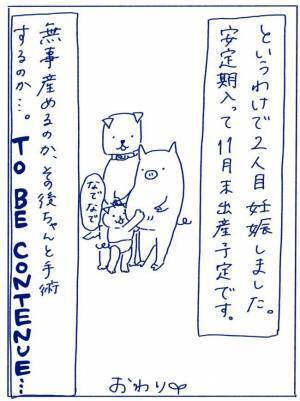 というわけで2人目妊娠しました。
安定期入って11月末出産予定です。
なでなで
無事産めるのか、その後ちゃんと手術
するのか…。TO BE CONTENUE…
おわり♡